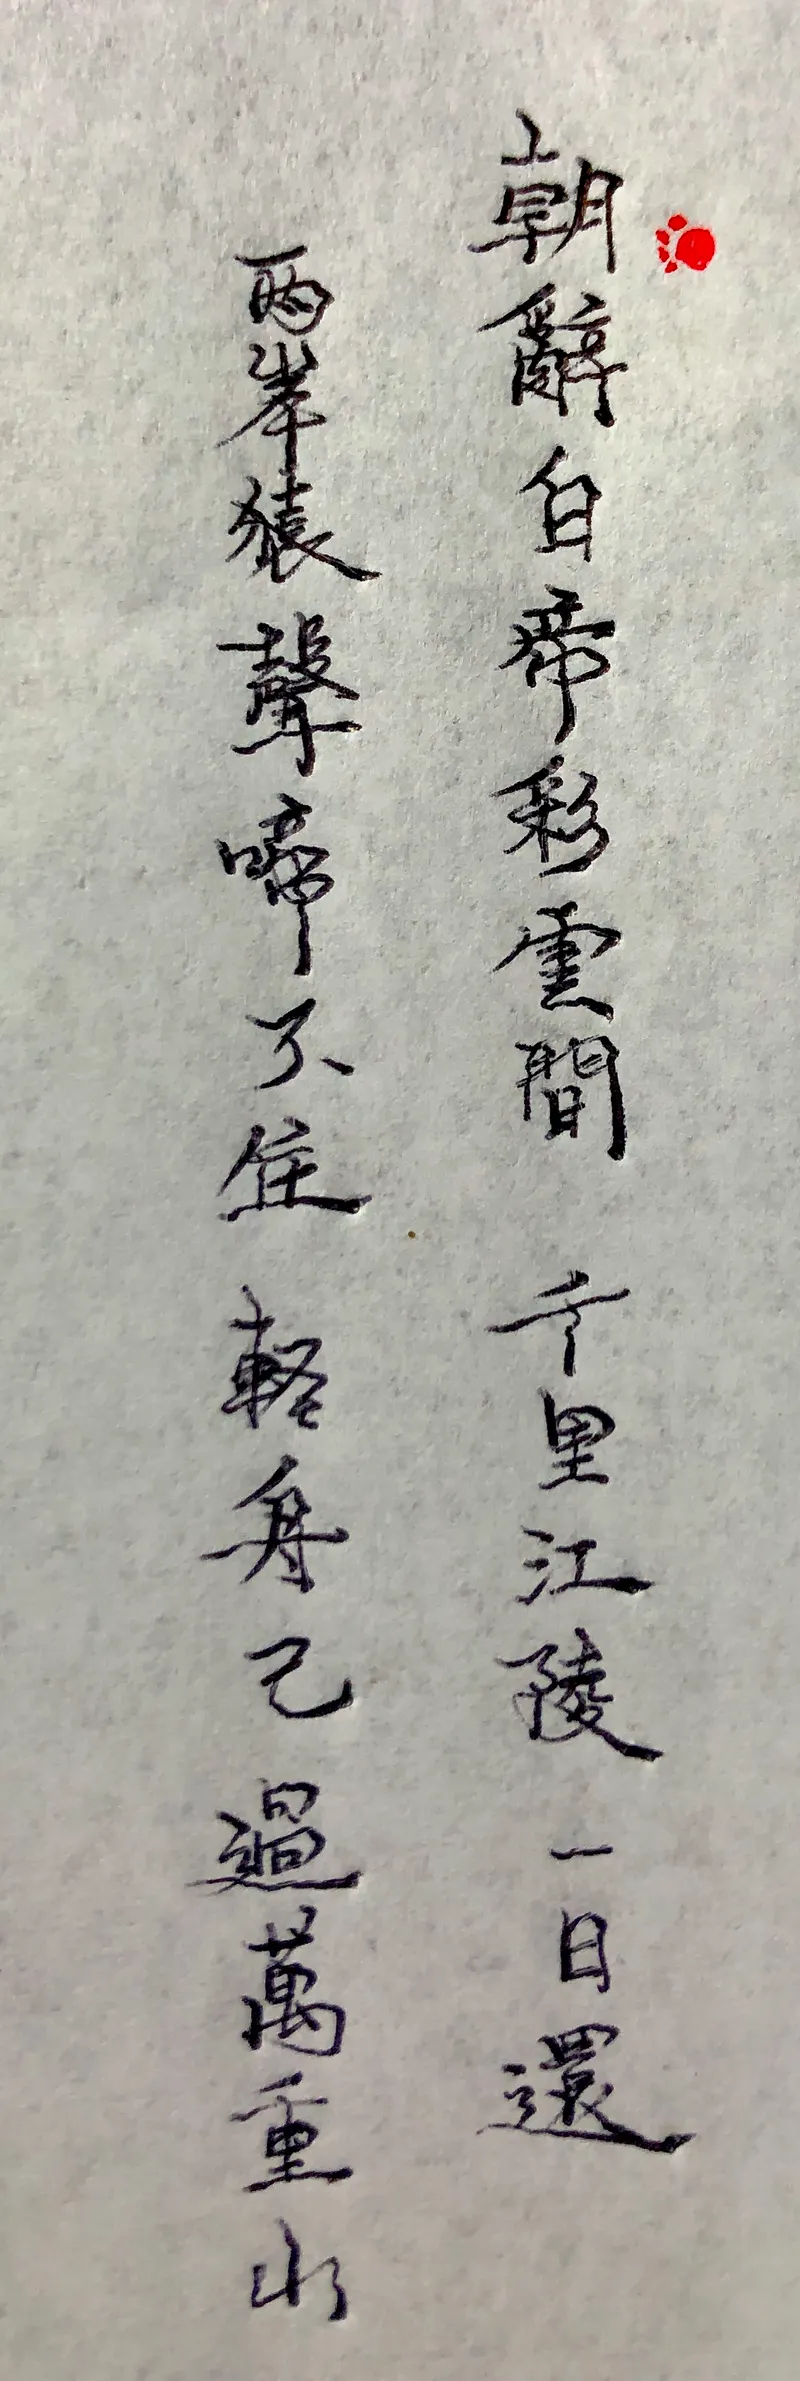 朝辭白帝彩雲間 千里江陵一日還
兩岸猿聲啼不住 軽舟已過萬重山